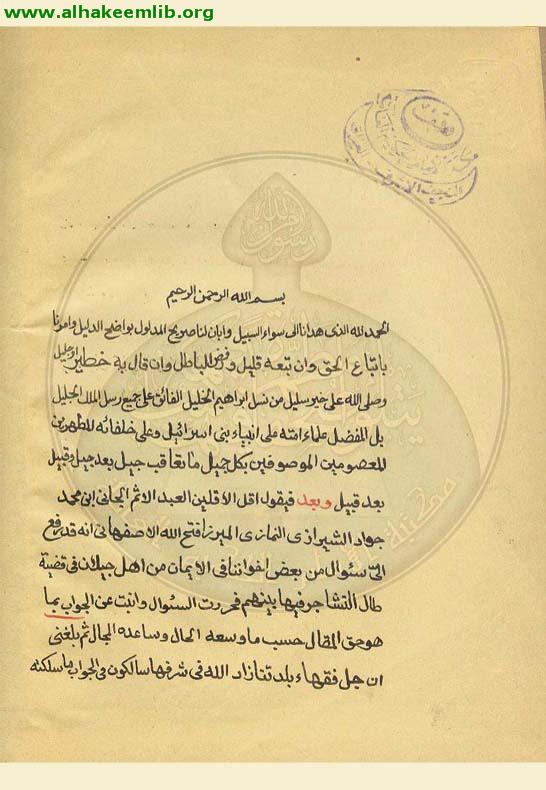 www.alhakeemlib.org
وقف
بسم الله الرحمن الرحيم
الحمد لله الذى هدانا الى سواء السبيل وابان لنا صريح المدلول بواضح الدليل وامرنا
باتباع الحق وان تبعه قليل ورفض الباطل وان قال به خطير او جليل
وصلى الله على خير سليل من نسل ابراهيم الخليل الفائق على جميع رسل الملك الجليل
بل المفضل علماء امته على انبياء بنى اسرائيل وعلى خلفائه المطهرين
المعصومين الموصوفين بكل جميل ما تعاقب جيل بعد جيل وقبيل
بعد قبيل وبعد فيقول اقل الاقلين العبد الاثم الجانى ابن محمد
جواد الشيرازى النمازى الميرزا فتح الله الاصفهانى انه قد رفع
الىّ سئوال من بعض اخواننا فى الايمان من اهل جيلان فى قضية
طال التشاجر فيها بينهم فحررت السئوال وانبت عن الجواب بما
هو حق المقال حسب ما وسعه الحال وساعده المجال ثم بلغنى
ان جل فقهاء بلدتنا زاد الله فى شرفها سالكون فى الجواب ما سلكته